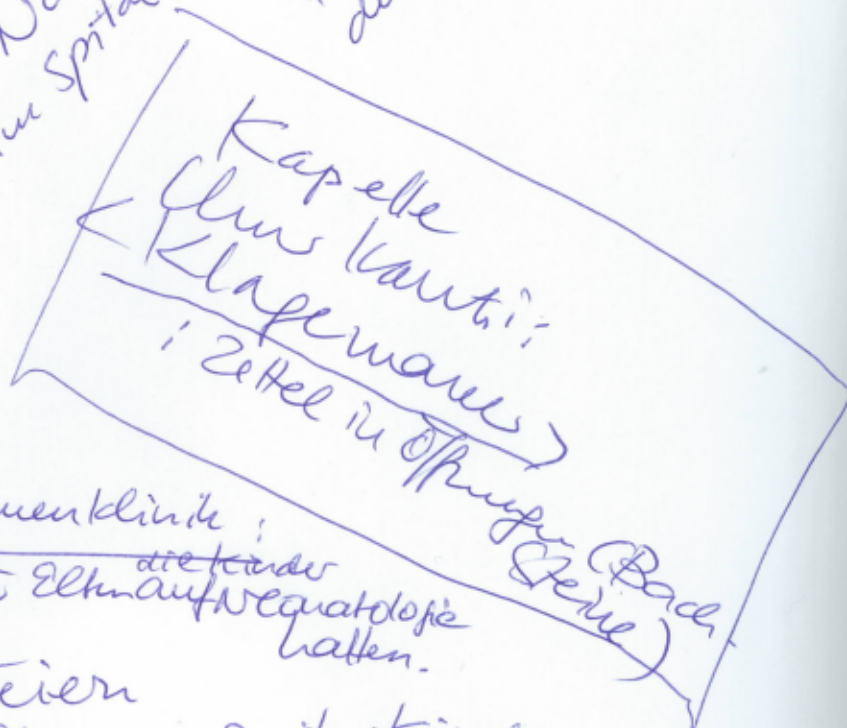 im Spital
Kapelle
Chur Kanti:
<Klagemauer>
: Zettel in Öffnungen (Bach
Steine)
uenklinik:
die Kinder
: Eltern auf Neonatologie
hatten.
eiern